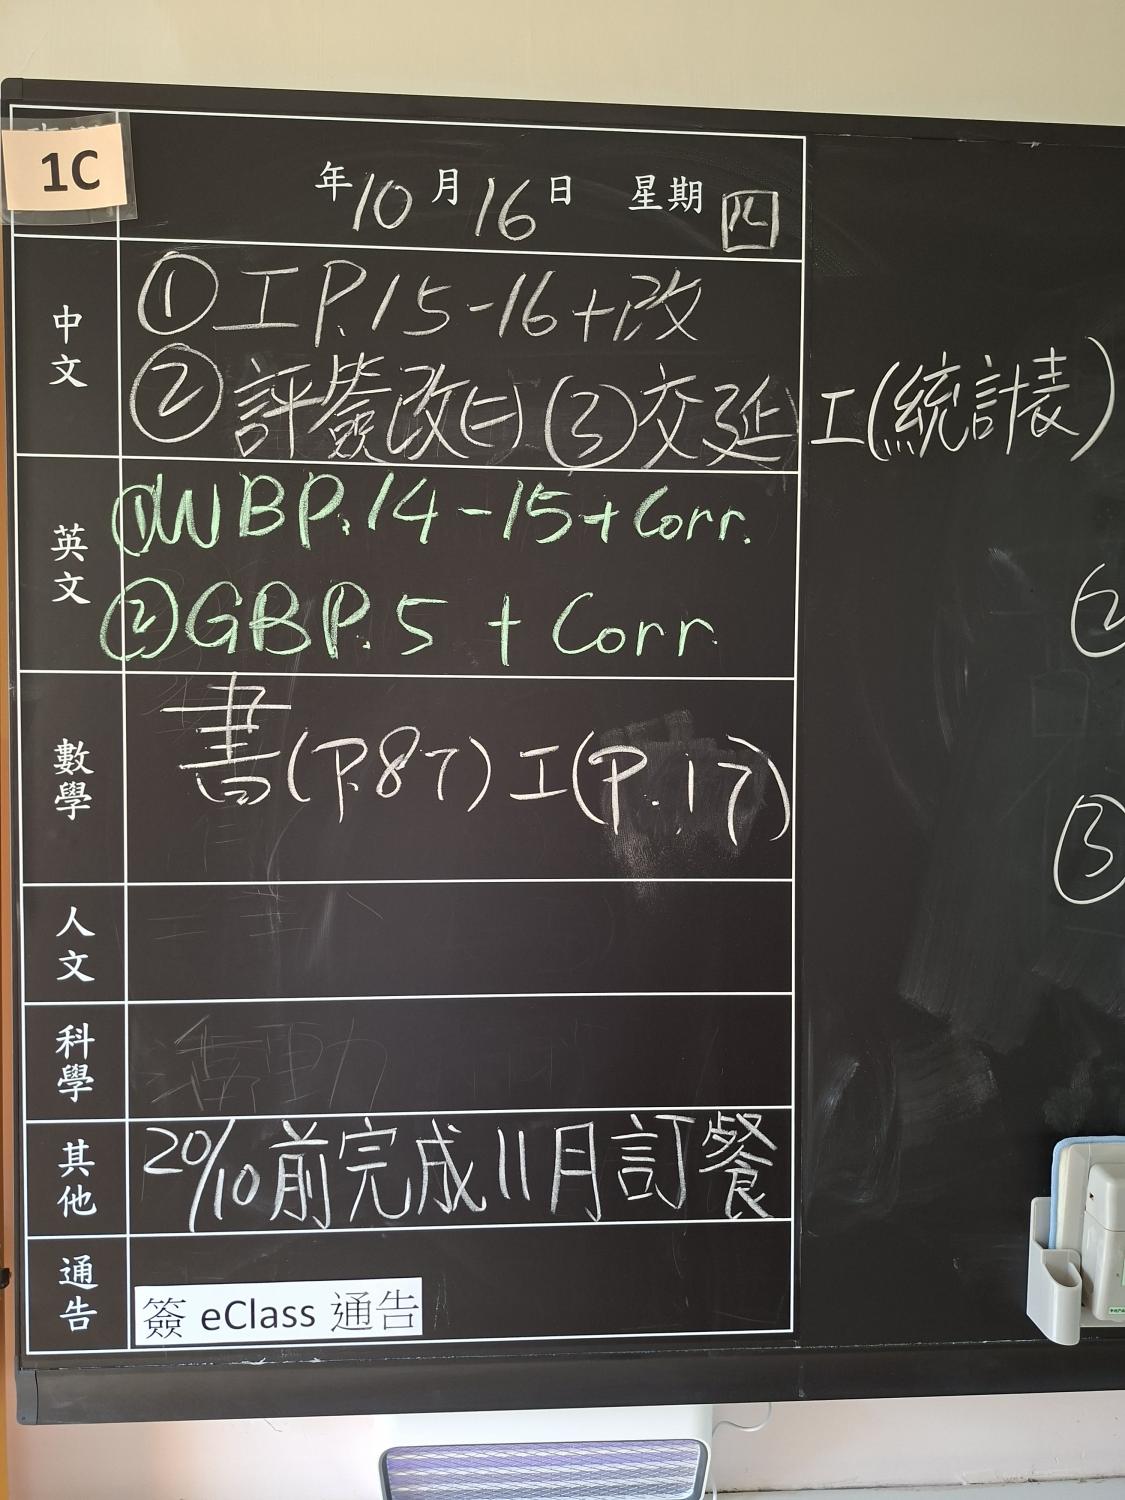 1C
年10月16日 星期四
中文
①工P.15-16+改
②評簽改(二) ③交延工(統計表)
英文
①WBP.14-15+Corr.
②GBP.5 + Corr.
數學
書(P.87) 工(P.17)
人文
科學
其他
20/10前完成11月訂餐
通告
簽 eClass 通告
②
③